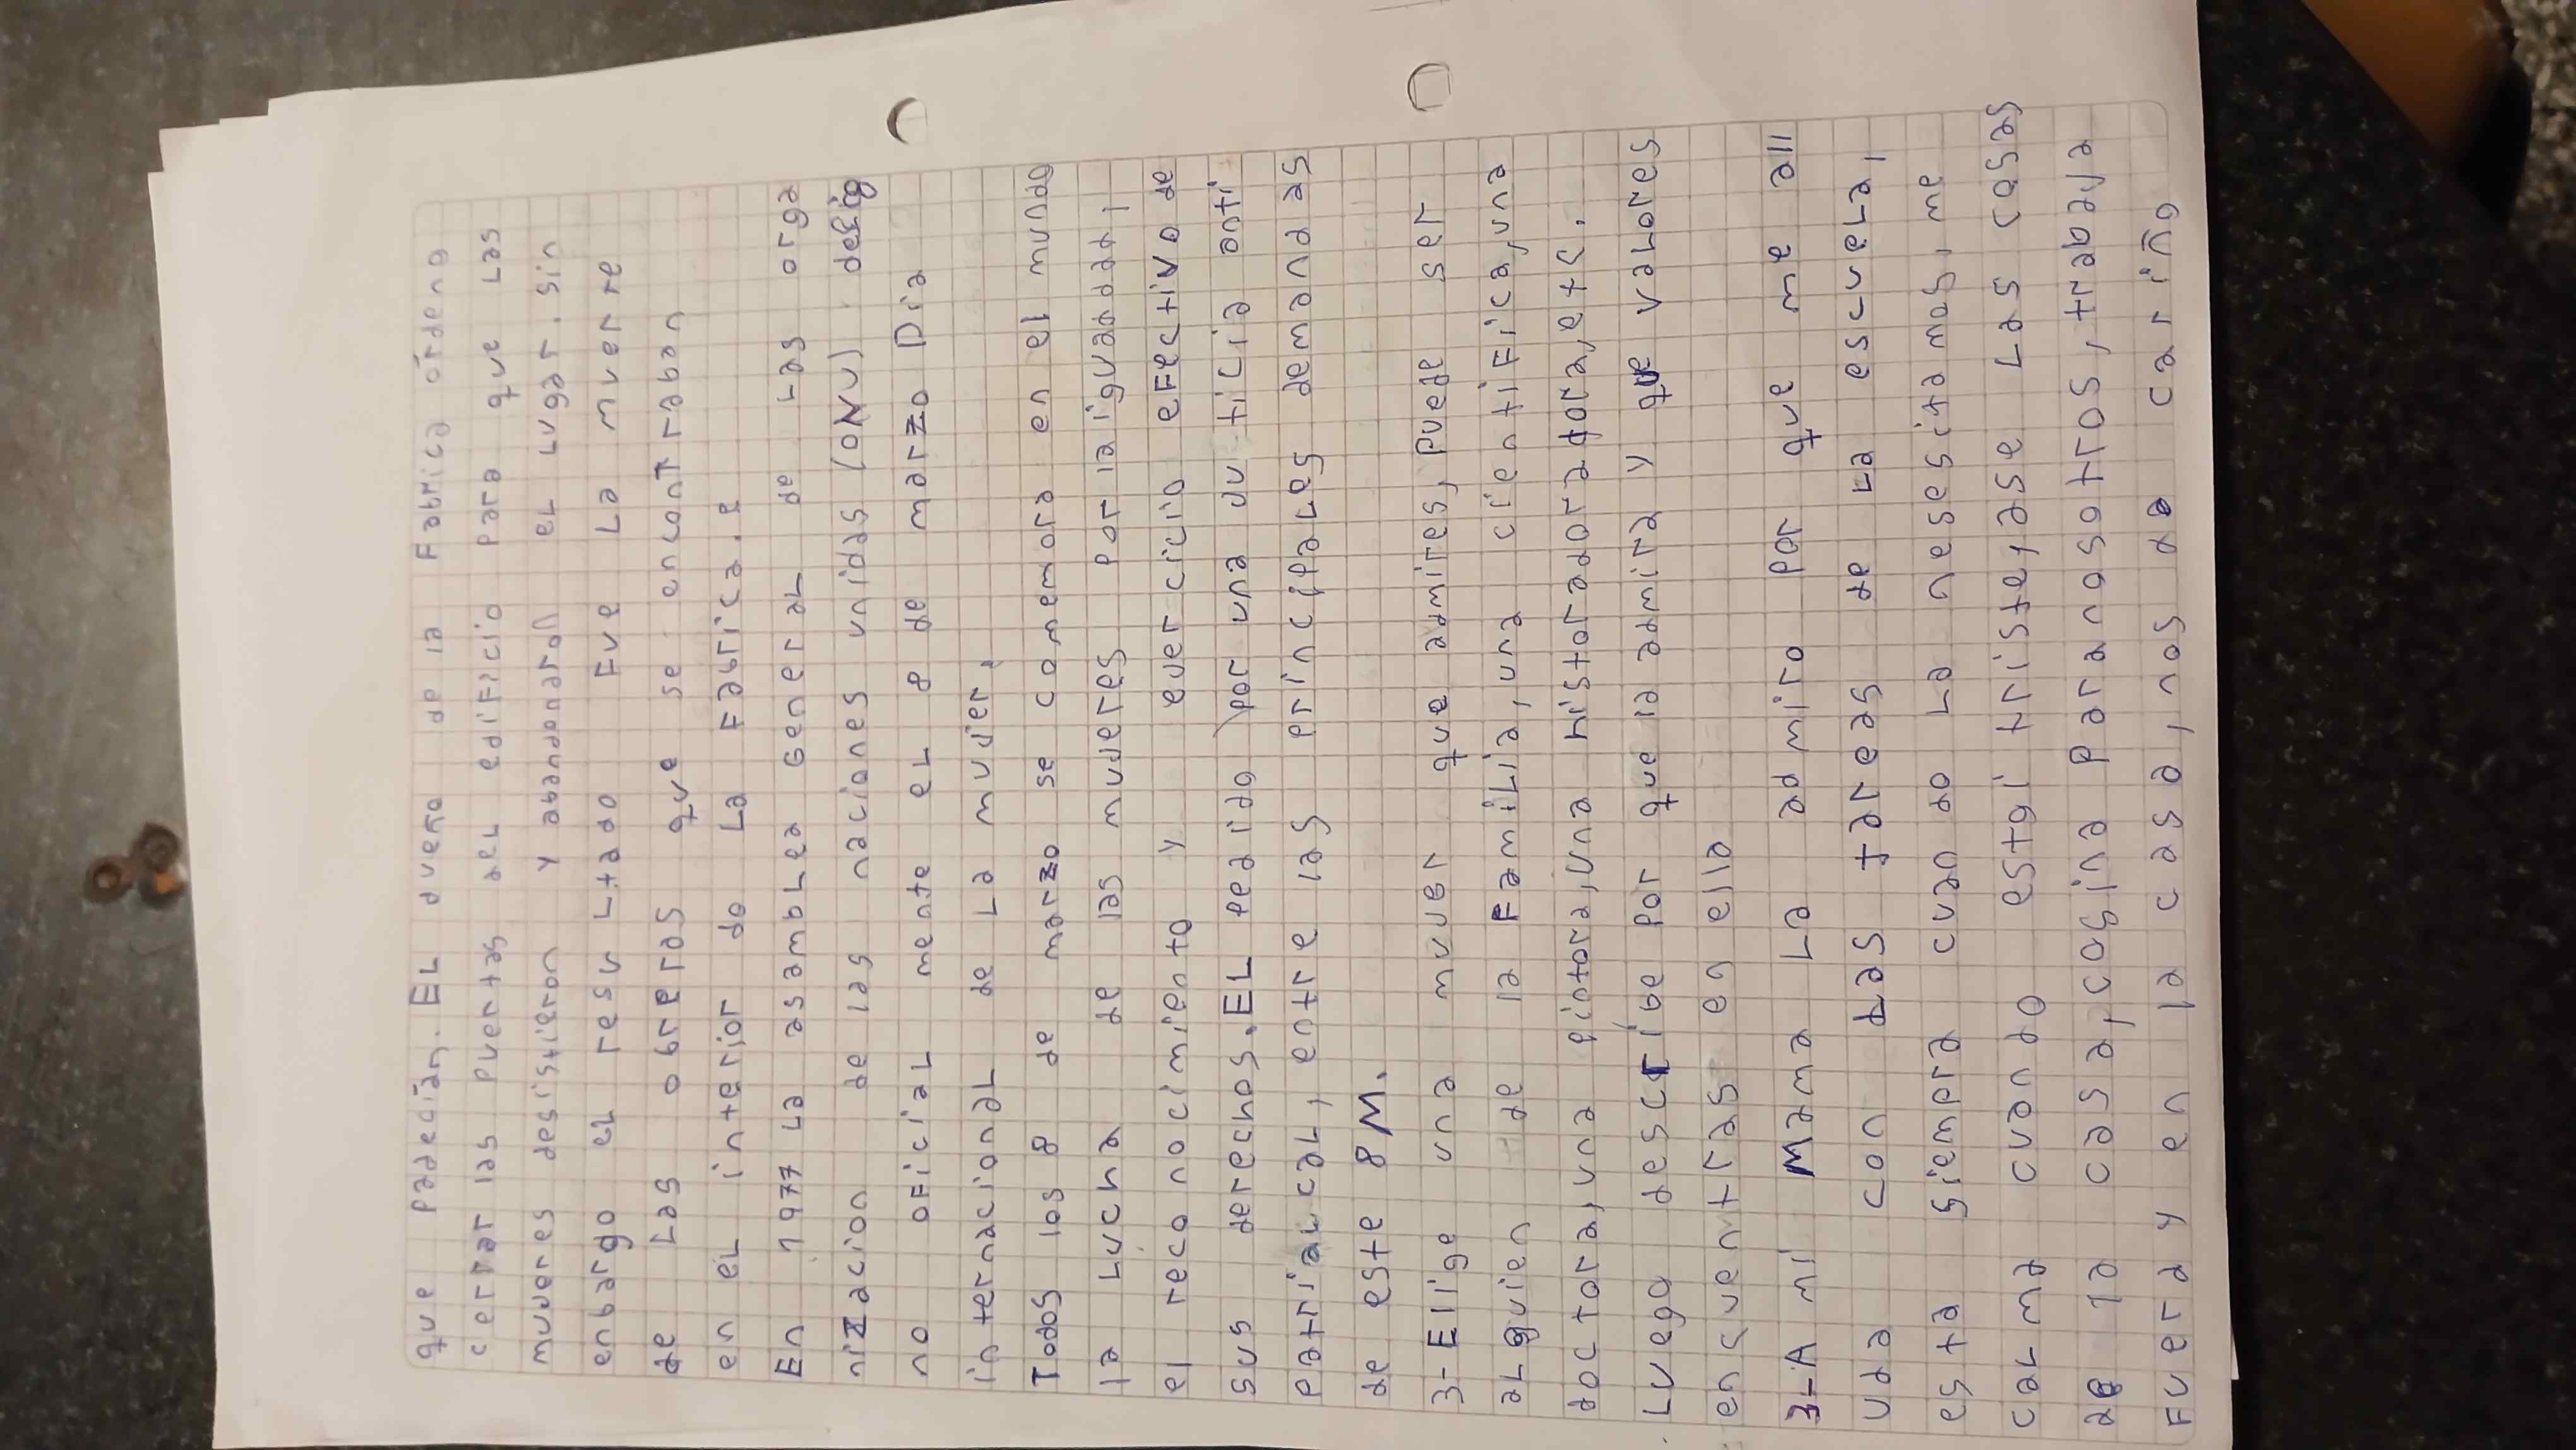 que padecian. EL dueño de la Fabrica ordeno
cerrar las puertas del edificio para que Las
muveres desistieron y abandonaron el Lugar. sin
enbargo el resultado Fue La muerte
de Las obreras que se encontraban
en eL interior de La Fabrica. e
En 1977 La asamblea General de Las orga
nizacion de las naciones unidas (ONU) desig
no oficiaL mente eL 8 de marzo Dia
internacionaL de La muJer.
Todos los 8 de marzo se conemora en el mundo
la Lucha de las muveres por la iguaddad,
el reco nocimiento y ever cicio efectivo de
sus derechos. EL pedido por una Ju ticia anti
patriarcal, entre las principales demandas
de este 8M.
3- Elige una muver que admires, puede ser
alguien de la Familia, una cientifica, una
doctora, una pintora, una historiadora, etc.
Luego describe por que la admira y que valores
encuentras en ella
3-A mi Mama La admiro por que me all
uda con Las tareas de La escuela,
esta siempre cuan do La nesesitamos, me
calma cuando estoi triste, ase Las cosas
de la casa, cosina para nosotros, trabaVa
Fuera y en la casa, nos da cariño